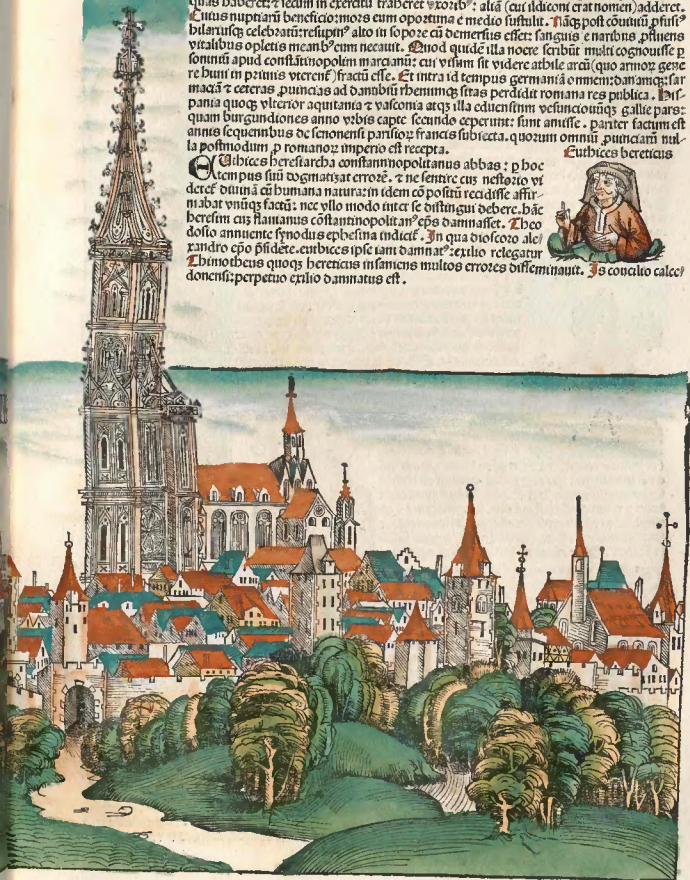 quas haberet: ⁊ secum in exercitu traheret vxorib⁹: aliā (cui ildiconi erat nomen) adderet.
nuptiarū beneficio: mors eum oportuna e medio sustulit. Nāq post cōuiuiū ꝓfusi⁹
hilariusq celebratū: resupin⁹ alto in sopore cū demersus esset: sanguis e naribus ꝓfluens
vitalibus opletis meanb⁹ eum necauit. Quod quidē illa nocte scribūt multi cognouisse ꝑ
somniū apud constātinopolim marcianū: cui visum sit videre athile arcū (quo armoꝝ gene
re huni in primis vterenť) fractū esse. Et intra id tempus germaniā omnem: daniamq: sar
maciā ⁊ ceteras ꝓuincias ad danubiū rhenumq sitas perdidit romana res publica. His-
pania quoq vlterior aquitania ⁊ vasconia atq illa eduensium vesunciouūq gallie pars:
quam burgundiones anno vrbis capte secundo ceperunt: sunt amisse. pariter factum est
annis sequentibus de senonensi parisioꝝ francis subiecta. quorum omniū ꝓuinciarū nul-
la postmodum ꝑ romanoꝝ imperio est recepta.
Euthices hereticus
EUthices heresiarcha constantinopolitanus abbas: ꝑ hoc
tempus suū dogmatizat errorē. ⁊ ne sentire cus nestorio vi
dereť diuinā cū humana natura: in idem cōpositū recidisse affir-
mabat vnūq factū: nec vllo modo inter se distingui debere. hāc
heresim cus flauianus cōstantinopolitan⁹ ep̄s damnasset. Theo
dosio annuente synodus ephesina indiciť. In qua dioscoro ale/
xandro ep̄o p̄sidēte. euthices ipse iam damnat⁹: exilio relegatur
Thimotheus quoq hereticus insaniens multos errores disseminauit. Is concilio calce/
donensi: perpetuo exilio damnatus est.